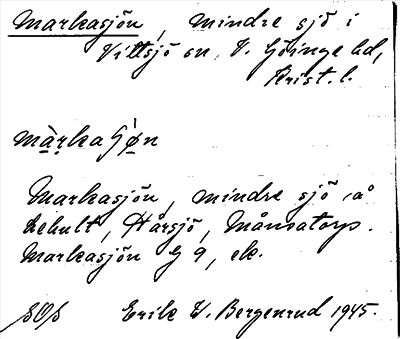 Markasjön, mindre sjö i
Vittsjö sn, V. Göinge hd,
Krist. l.
màrkaʃǿn
Markasjön, mindre sjö, å
Lehult, Hårsjö, Månsatorp.
Markasjön G 9, ek.
Erik V. Bergenrud 1945.